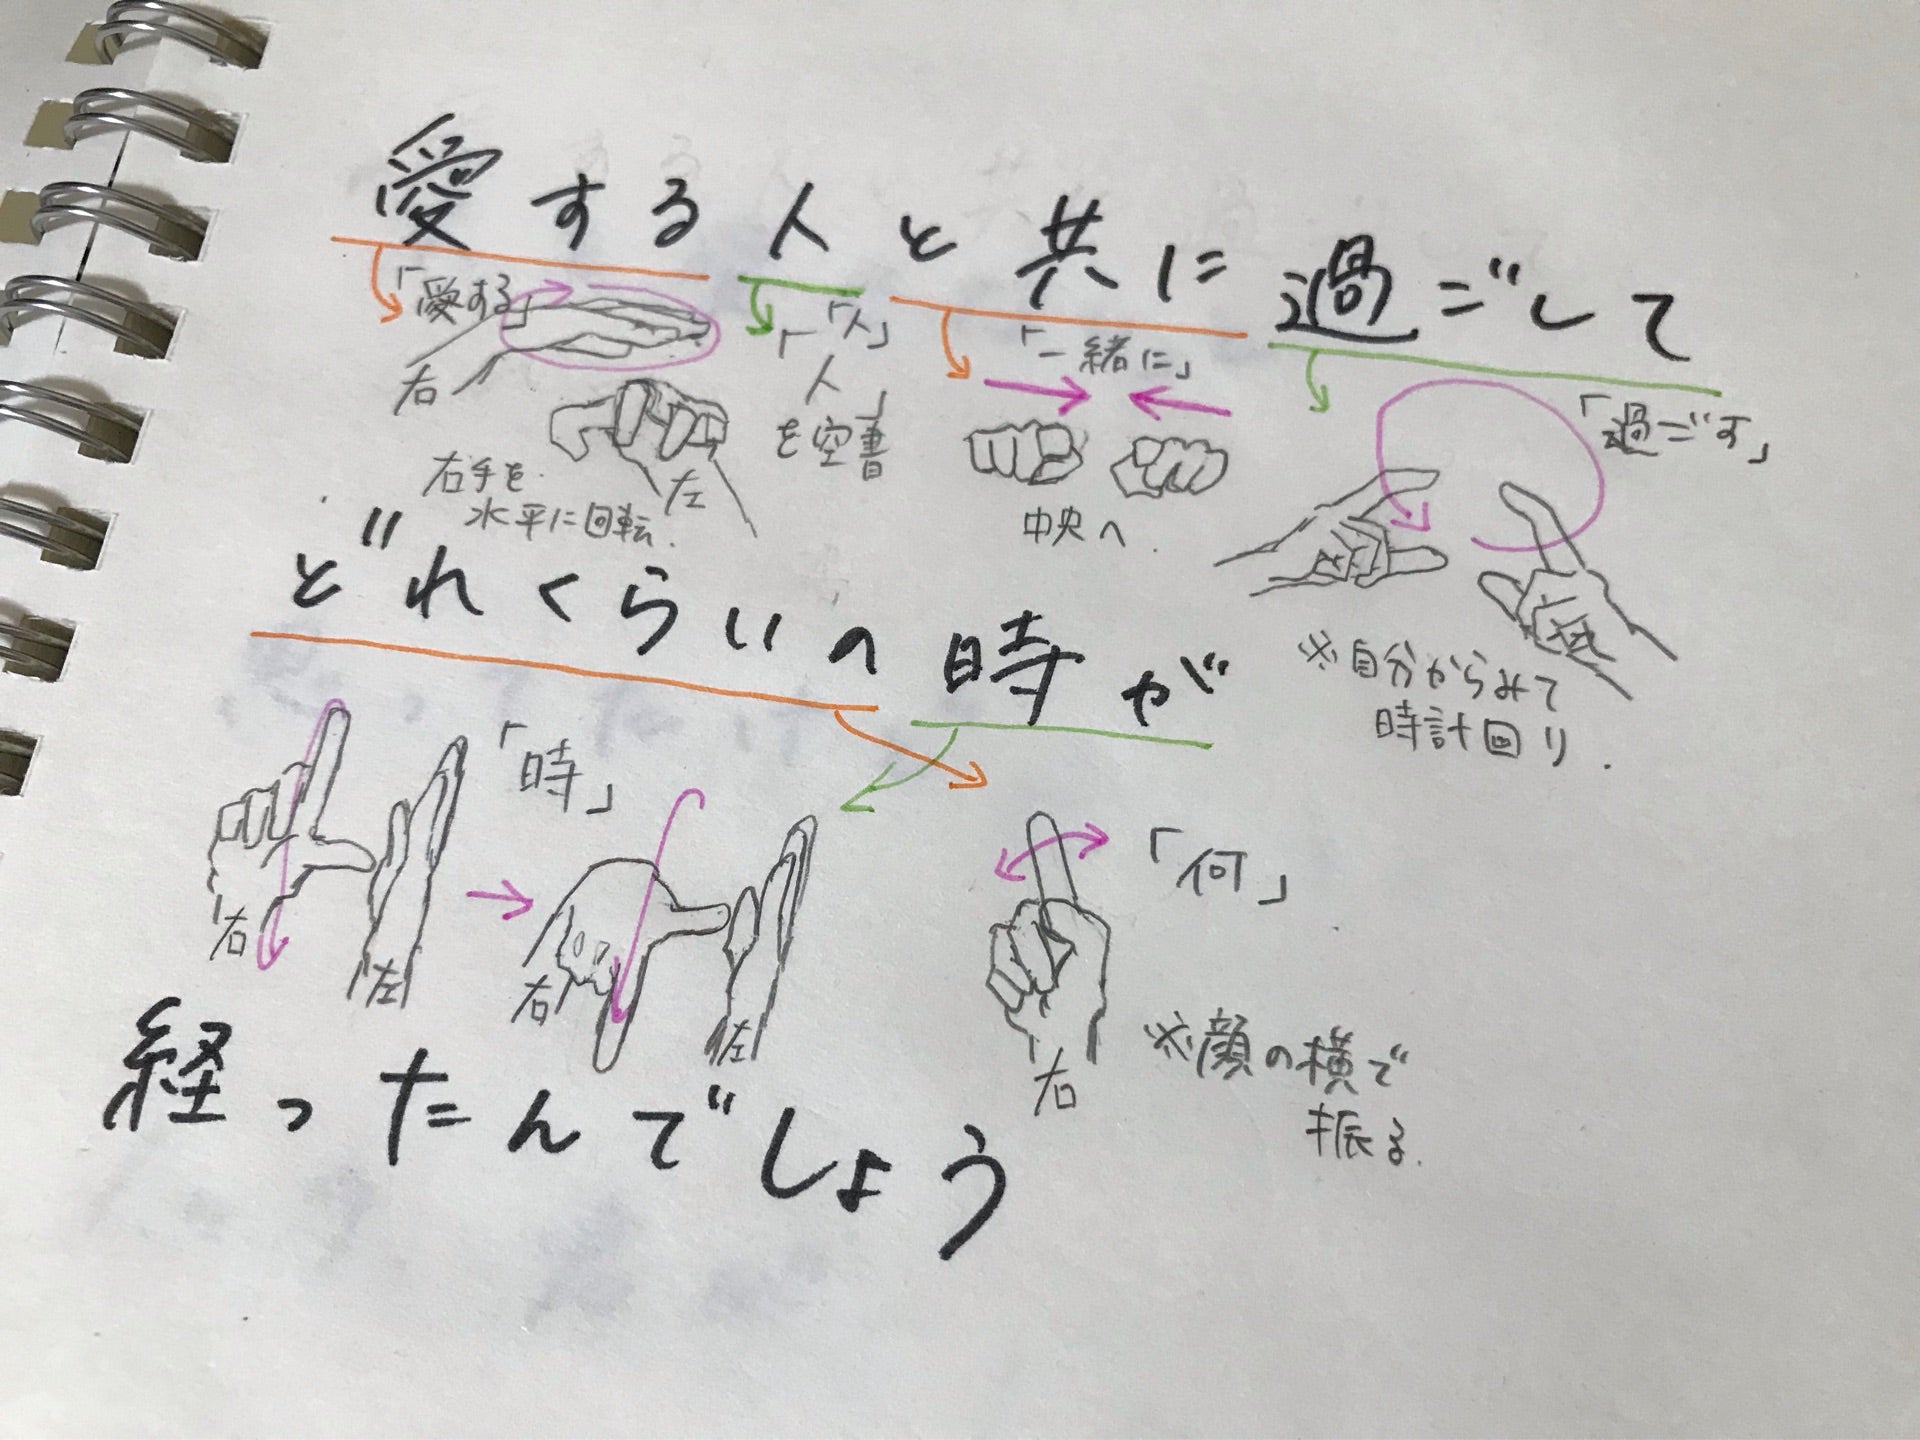 愛する人と共に過ごして
「愛する」
右
右手を
水平に回転.
左
「人」
「人」
を空書
「一緒に」
中央へ.
「過ごす」
※自分からみて
時計回り.
どれくらいの時が
「時」
右
左
右
左
「何」
右
※顔の横で
振る.
経ったんでしょう